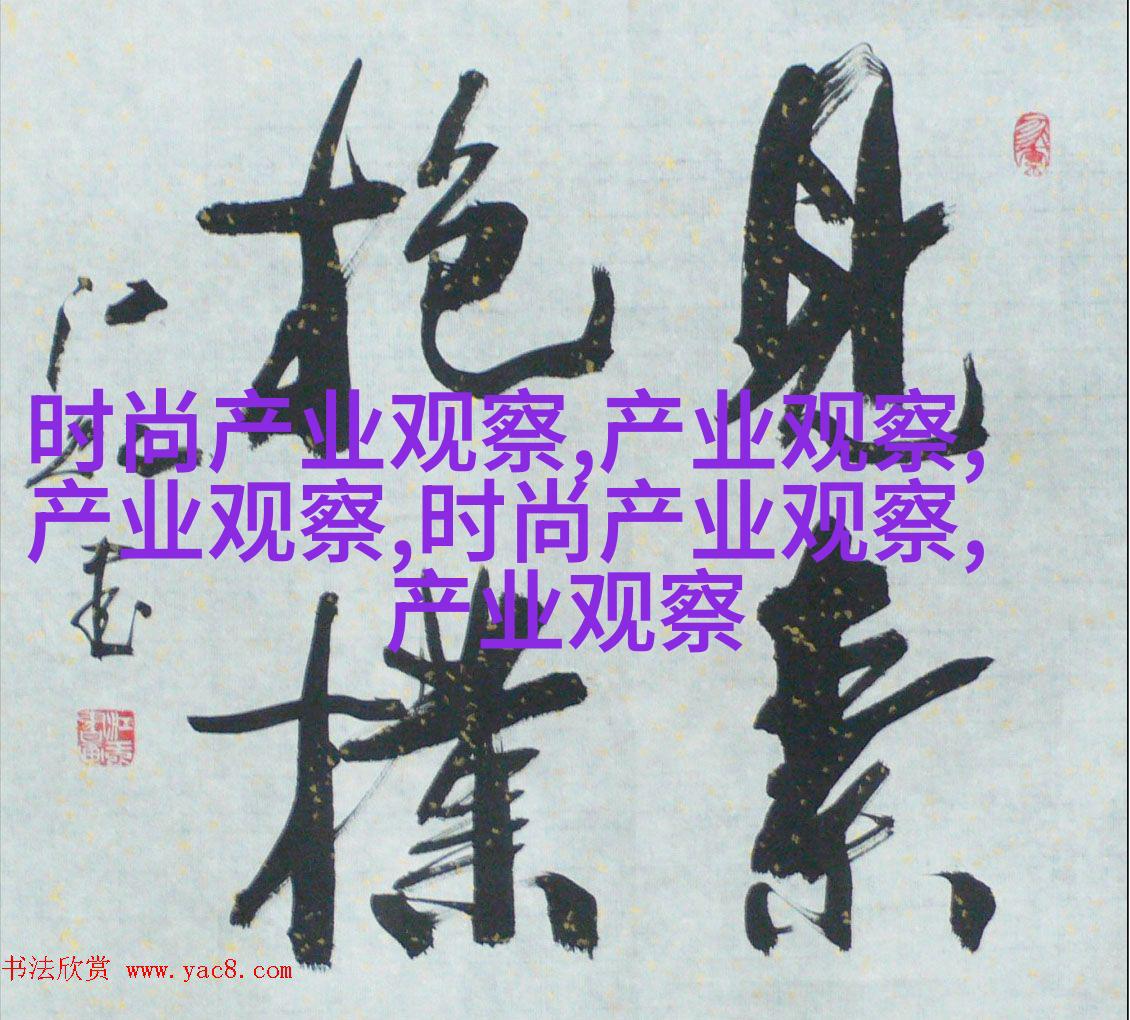 見素
抱樸
时尚产业观察,产业观察,
产业观察,时尚产业观察,
产业观察
书法欣赏 www.yac8.com